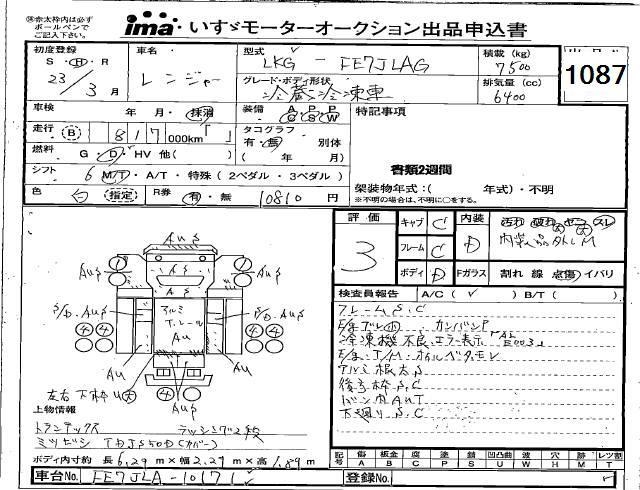 ※赤太枠内は必ず
ボールペンで
ご記入下さい。
ima いすゞモーターオークション出品申込書
初度登録 S・H・R 23/3月
車名 レンジャー
型式 LKG - FE7JLAG
積載(kg) 7500
グレード・ボディ形状 冷蔵冷凍車
排気量(cc) 6400
1087
車検 年・月・抹消
装備 A P P C S W
特記事項
走行 B 817 000km「 」
タコグラフ 有・無 別体
( 年 月)
燃料 G・D・HV 他( )
書類2週間
シフト 6 M/T・A/T・特殊(2ペダル・3ペダル)
架装物年式:( 年式)・不明
※不明の場合は、不明に○をする。
色 白 指定
R券 有・無 10810 円
評価 3
キャブ C
フレーム C
ボディ D
内装 D
汚れ 破れ スレ
Fガラス 割れ 線 点傷 イバリ
検査員報告 A/C( ✓ ) B/T( )
フレームS,C
カンバンP
冷凍機不良エラー表示
アルミ根太S
後手枠S,C
下廻りS,C
AUS
AUS
AUS
アルミ
T.レール
AU
S/D.AUS
S/D.AUS
AU
AU
AUS
左右下枠U大
上物情報
トランテックス ラッシング2段
ミツビシ TDJS50D(カバー)
ボディ内寸約 長6.29m×幅2.29m×高1.89m
記号 傷A 板金B 腐C 塗P 錆S 凹凸曲U 波W 穴H 跡M レツ割T
車台No. FE7JLA-10171
登録No.